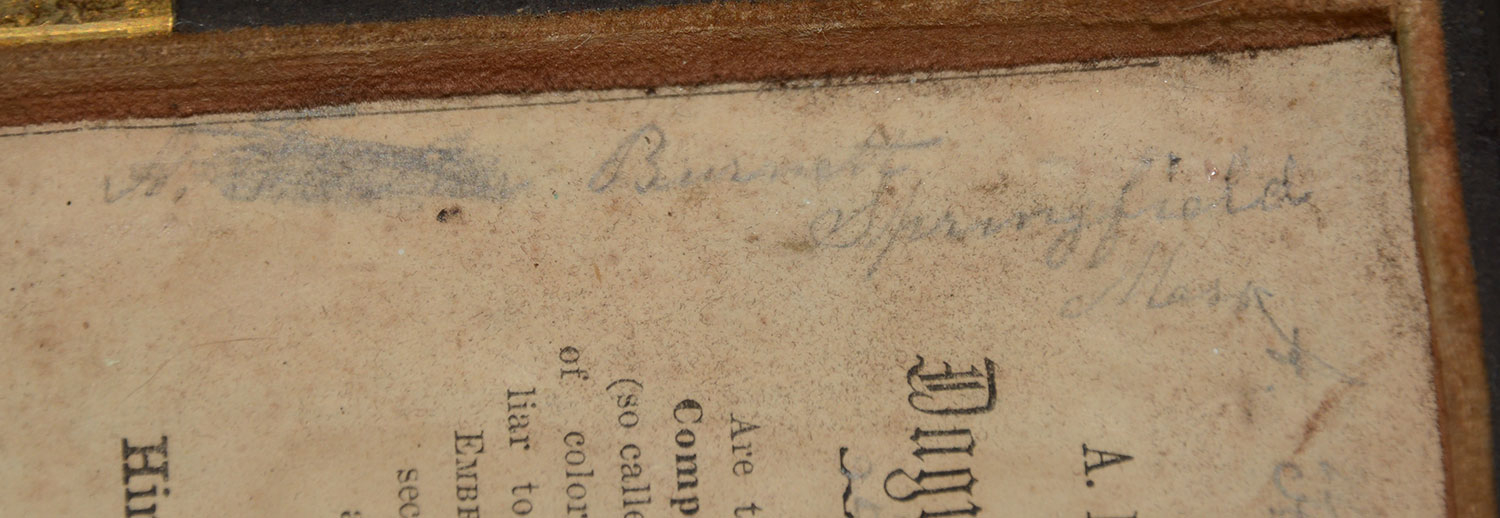 A. Burnett
Springfield
Mark
A.
Dagu
Are t
Comp
(so calle
of color
liar to
EMBE
sec
Hin